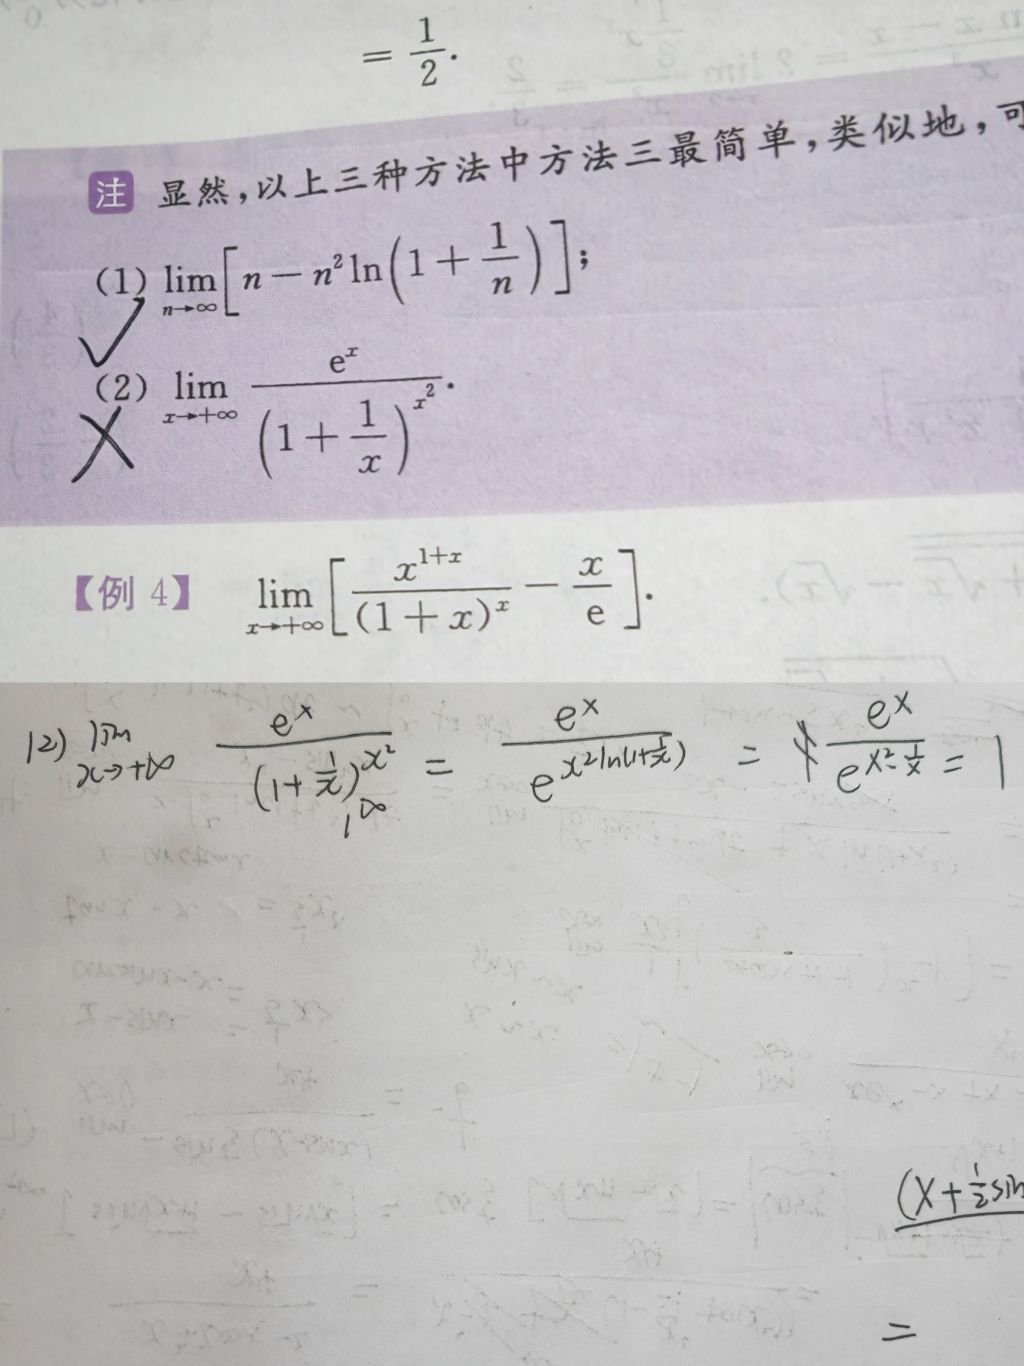 = 1/2.
注 显然,以上三种方法中方法三最简单,类似地,可
(1) lim n→∞ [n − n² ln(1 + 1/n)];
(2) lim x→+∞ e^x / (1 + 1/x)^(x²).
【例 4】 lim x→+∞ [x^(1+x) / (1 + x)^x − x/e].
(2) lim x→+∞ e^x / (1 + 1/x)^(x²) = e^x / e^(x² ln(1 + 1/x)) = e^x / e^(x² · 1/x) = 1
1^∞
(x + 1/2 sin
=